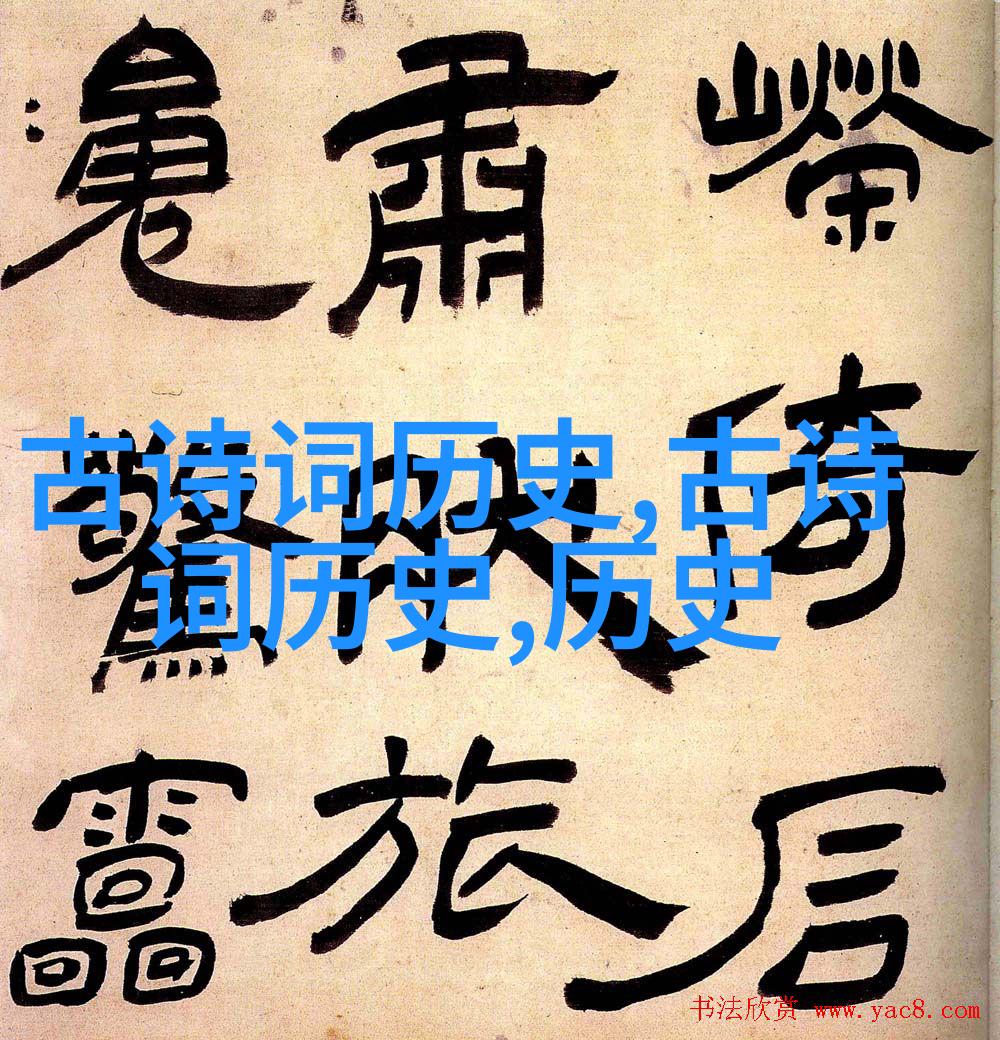 古诗词历史,古诗
词历史,历史
嶸倚
肅旅
驚靁
书法欣赏 www.yac8.com